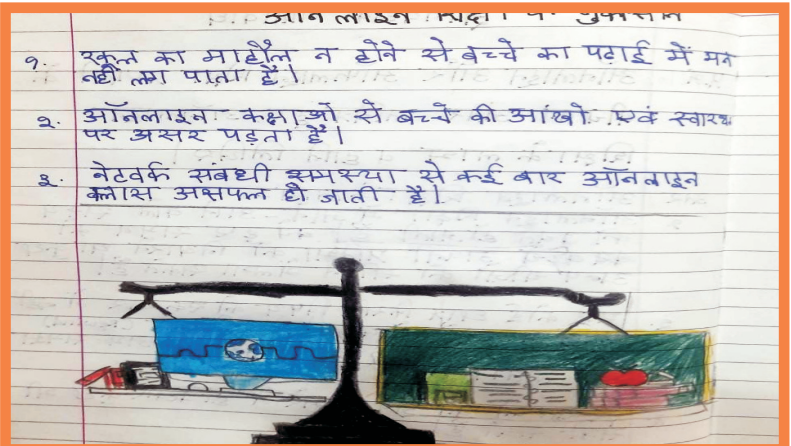 ऑनलाइन शिक्षा के नुकसान
१. स्कूल का माहौल न होने से बच्चे का पढ़ाई में मन
नहीं लग पाता है।
२. ऑनलाइन कक्षाओं से बच्चे की आंखों एवं स्वास्थ
पर असर पड़ता है।
३. नेटवर्क संबंधी समस्या से कई बार ऑनलाइन
क्लास असफल हो जाती है।